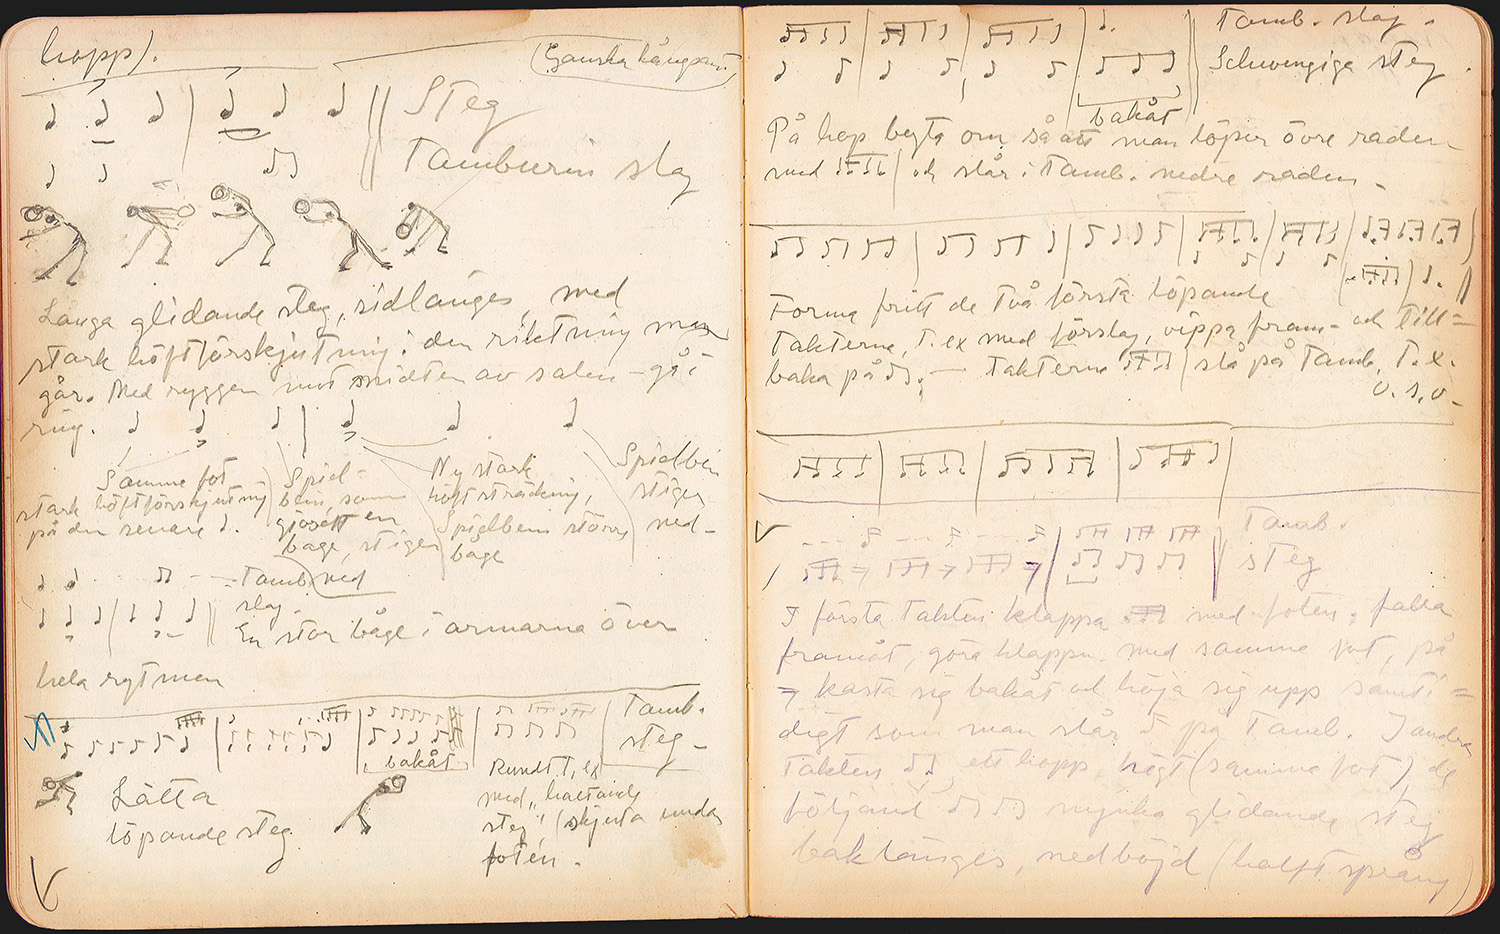 hopp).
(Ganska långsamt)
Steg
Tamburin slag
Långa glidande steg, sidlänges, med
stark höftförskjutning i den riktning man
går. Med ryggen mot midten av salen - gå i
ring.
Samma fot
stark höftförskjutning
på den senare d.
Spiel-
bein, som
gjort en
båge, stiger
ned
Ny stark
höftsträckning,
Spielbein större
båge
Spielbein
stiger
ned-
Tamb.
slag.
En stor båge i armarna över
hela rytmen
Tamb.
steg-
bakåt
Lätta
löpande steg.
Rundt t, ex
med "haltande
steg", (skjuta undan
foten.
Tamb. slag.
Schwengiga steg.
bakåt
På hop byta om så att man löper övre raden
med och slår i Tamb. nedre raden.
Forma fritt de två första löpande
takterna, t. ex med förslag, vippa fram- och till=
baka på ; — takterna slå på Tamb. t. x.
o. s. v-
Tamb.
steg
I första takten klappa med foten, falla
framåt, göra klappn. med samma fot, på
kasta sig bakåt och höja sig upp samti=
digt som man slår på Tamb. I andra
takten ett hopp, högt (samma fot), de
följand mjuka glidande steg
baklänges, nedböjd (halft språng)